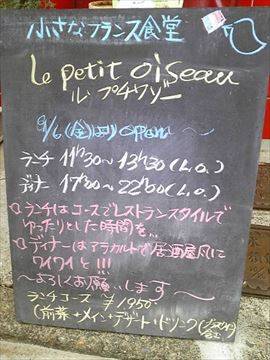 小さなフランス食堂
Le petit oiseau
ル プチワゾー
9/6(金) open 〜
ランチ 11h30〜13h30(L.o.)
ディナー 17h30〜22h30(L.o.)
ランチはコースでレストランスタイルで
ゆったりとした時間を…
ディナーはアラカルトで居酒屋風に
ワイワイと!!!
〜よろしくお願いします〜
ランチコース ¥1950-
(前菜+メイン+デザート+ドリンク